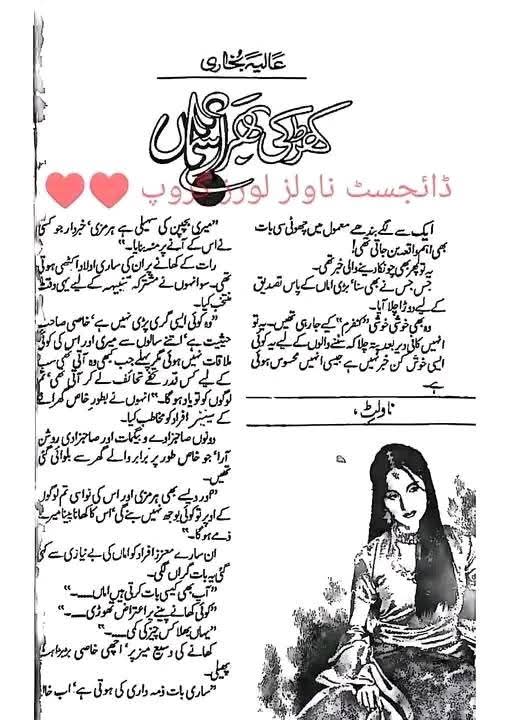 عالیہ بخاری
کھڑکی بھر آسماں
ڈائجسٹ ناولز لورز گروپ
ایک سے لگے بندھے معمول میں چھوٹی سی بات
بھی اہم واقعہ بن جاتی تھی!
یہ تو پھر بھی چونکا دینے والی خبر تھی۔
جس جس نے بھی سنا‘ بڑی اماں کے پاس تصدیق
کے لیے دوڑا چلا آیا۔
وہ بھی خوشی خوشی ”کنفرم“ کیے جا رہی تھیں۔ یہ تو
انہیں کافی دیر بعد پتہ چلا کہ سننے والوں کے لیے یہ کوئی
ایسی خوش کن خبر نہیں ہے جیسی انہیں محسوس ہوئی
ہے۔
ناولٹ
”میری بچپن کی سہیلی ہے ہرمزی‘ خبردار جو کسی
نے اس کے آنے پر منہ بنایا۔“
رات کے کھانے پر ان کی ساری اولاد اکٹھی ہوتی
تھی۔ سو انہوں نے مشترکہ تنبیہہ کے لیے یہی وقت
منتخب کیا۔
”وہ کوئی ایسی گری پڑی نہیں ہے‘ خاصی صاحب
حیثیت ہے‘ اتنے سالوں سے میری اور اس کی کوئی
ملاقات نہیں ہوئی مگر پہلے جب کبھی وہ آتی تھی سب
کے لیے کس قدر تحفے تحائف لے کر آتی تھی‘ تم
لوگوں کو تو یاد ہو گا۔“ انہوں نے بطور خاص گھرانے
کے سینئر افراد کو مخاطب کیا۔
دونوں صاحبزادے و بیگمات اور صاحبزادی روشن
آرا‘ جو خاص طور پر برابر والے گھر سے بلوائی گئی
تھیں۔
”اور ویسے بھی ہرمزی اور اس کی نواسی تم لوگوں
کے اوپر تو کوئی بوجھ نہیں بنے گی‘ اس کا کھانا پینا میرے
ذمے ہو گا۔“
ان سارے معزز افراد کو اماں کی بے نیازی سے کہی
گئی یہ بات گراں لگی۔
”آپ بھی کیسی بات کرتی ہیں اماں۔۔۔۔“
”کوئی کھانے پینے پر اعتراض تھوڑی۔۔۔۔“
”یہاں بھلا کس چیز کی کمی۔۔۔۔“
کھانے کی وسیع میز پر‘ اچھی خاصی بڑبڑاہٹ
پھیلی۔
”ساری بات ذمہ داری کی ہوتی ہے‘ اب خالہ